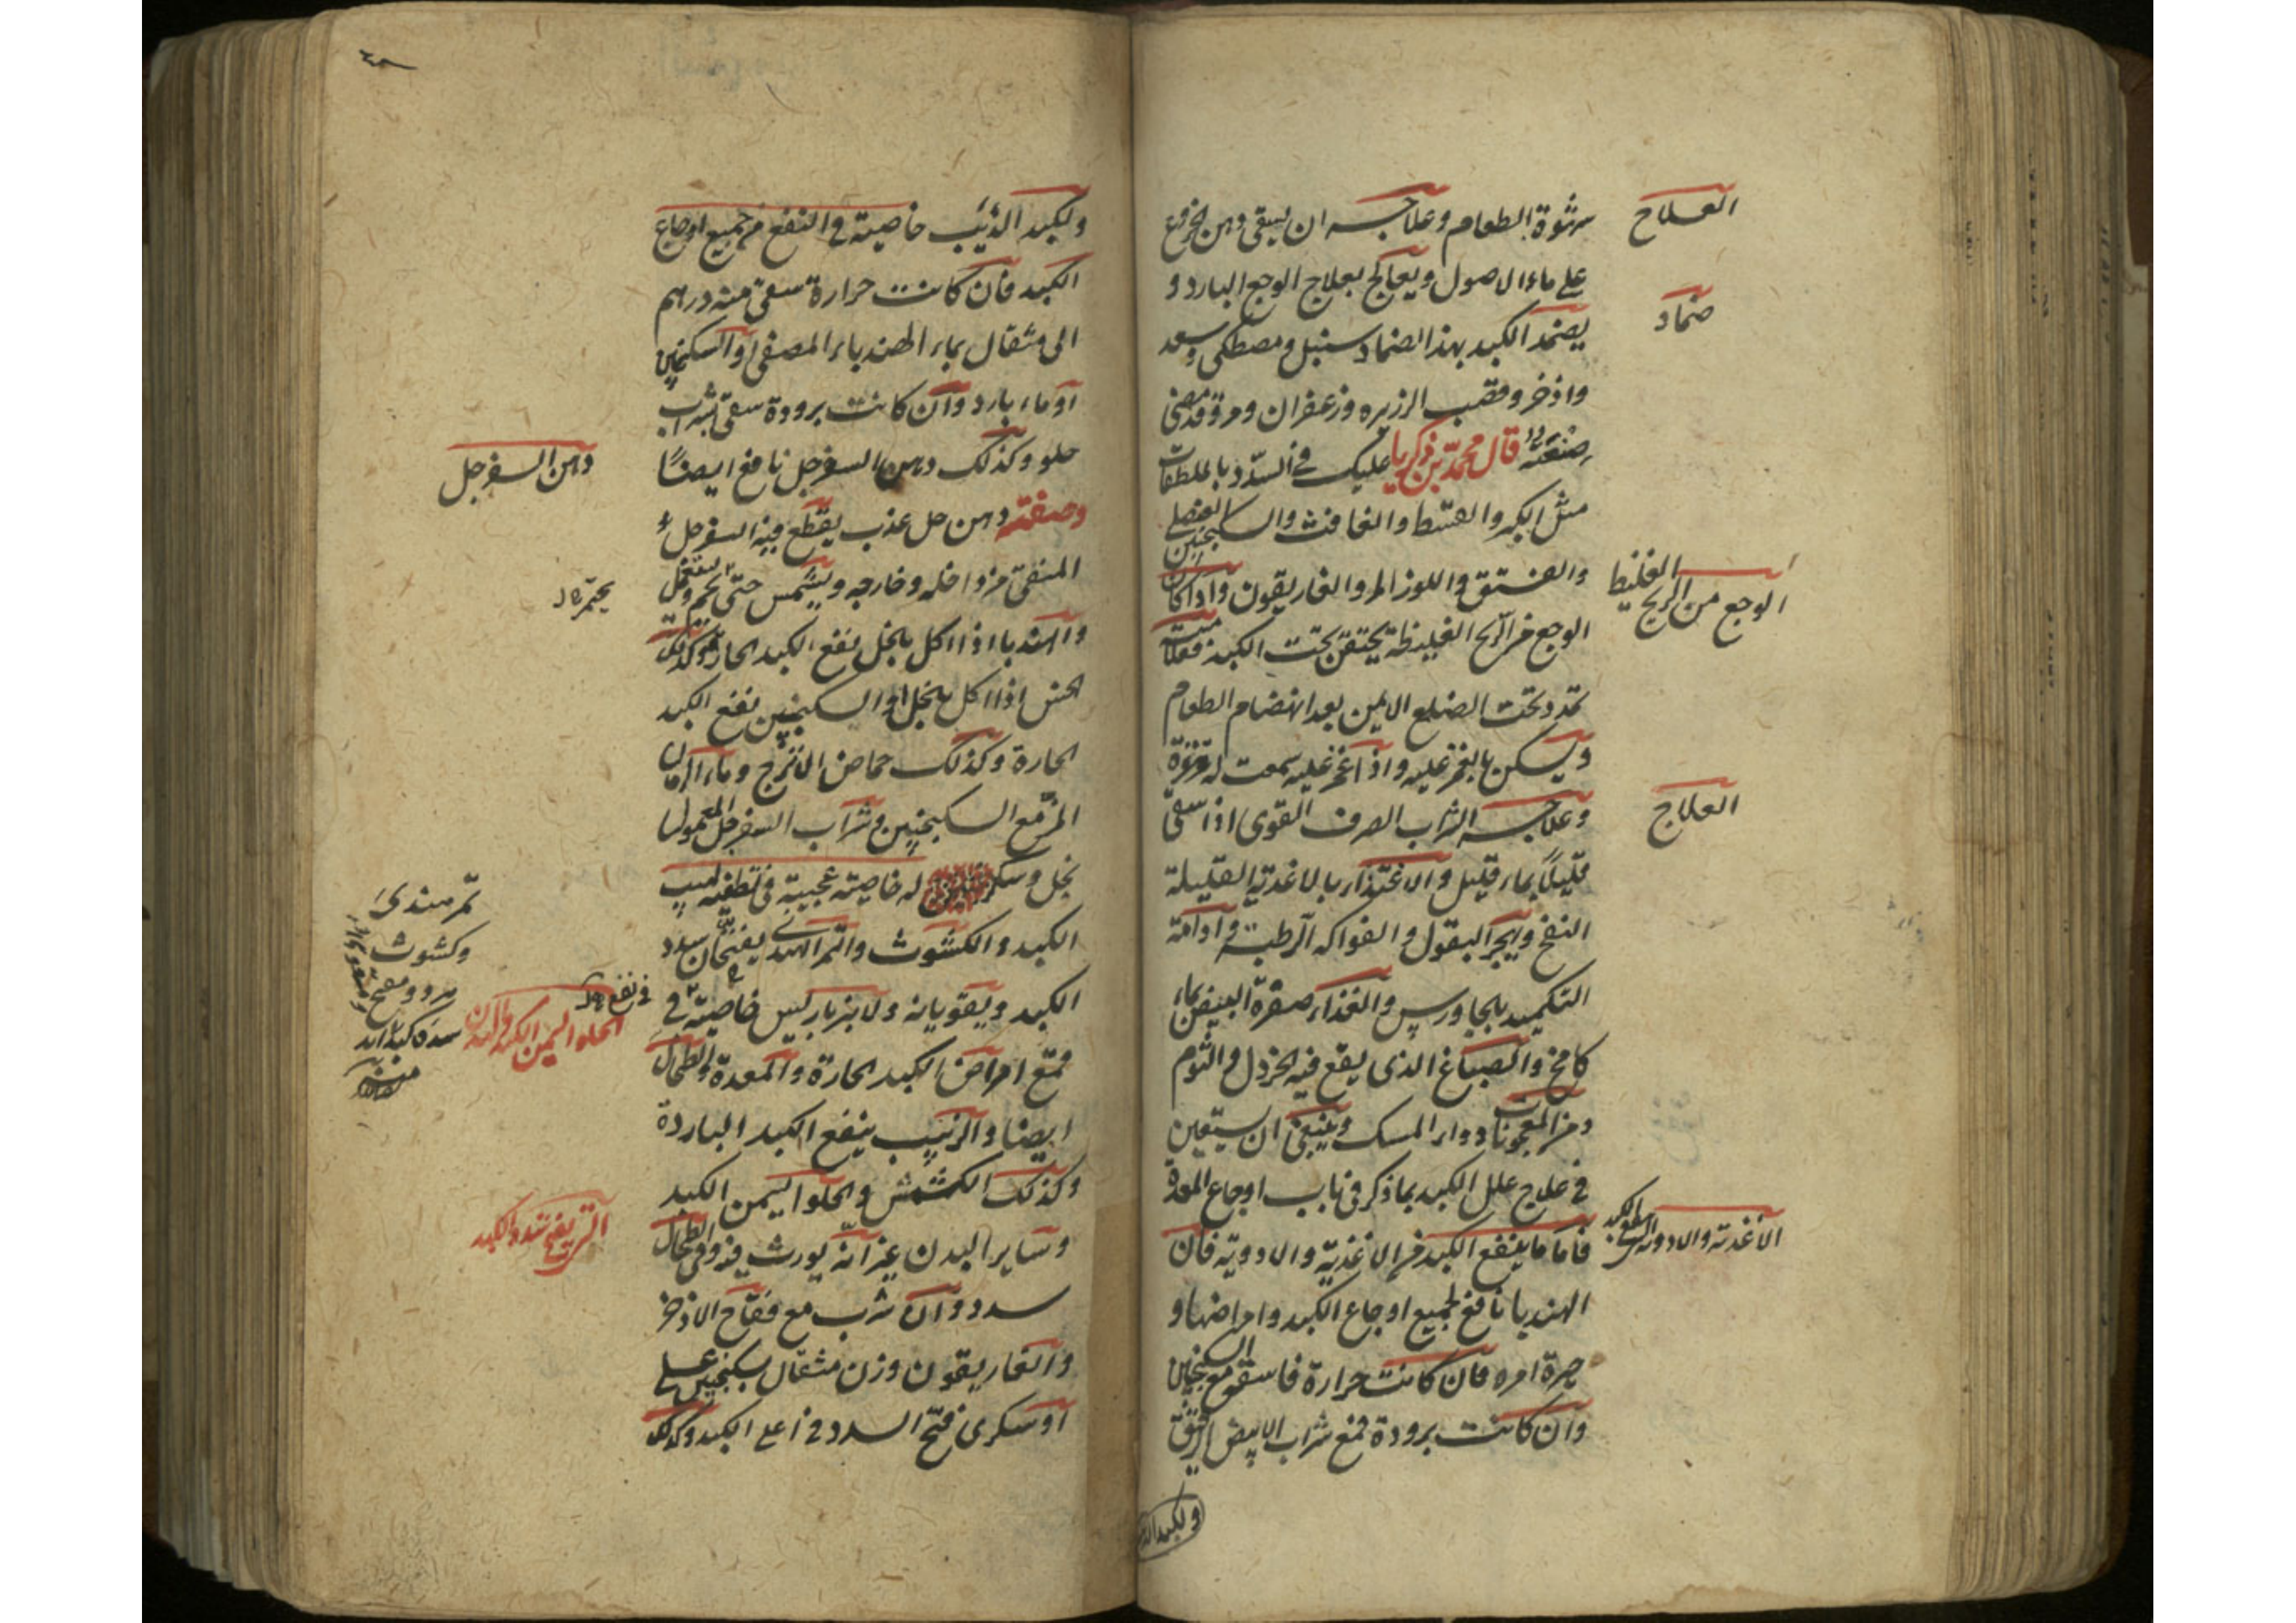 العلاج
شهوة الطعام وعلاجه ان يسقى دهن الخروع
على ماء الاصول ويعالج بعلاج الوجع البارد و
ضماد
يضمد الكبد بهذا الضماد سنبل ومصطكى وسعد
واذخر وقصب الزريره وزعفران ومر وقد مضى
صنعته قال محمد بن زكريا عليك في السدد بالملطفات
مثل الكبر والقسط والغافت والسكنجبين العنصلى
والفستق واللوز المر والغاريقون واذا كان
الوجع من الريح الغليظ
الوجع من الريح الغليظة يحتقن تحت الكبد فعلامته
تمدد تحت الضلع الايمن بعد انهضام الطعام
ويسكن بالغمز عليه واذا غمز عليه سمعت له قرقرة
العلاج
وعلاجه الشراب الصرف القوى اذا سقى
قليلا بماء قليل والاغتذاء بالاغذية القليلة
النفخ ويهجر البقول والفواكه الرطبة وادامة
التكميد بالجاورس والغذاء صفرة البيض بماء
كامخ والصباغ الذى يقع فيه الخردل والثوم
ومن المعجونات دواء المسك وينبغى ان يستعين
في علاج علل الكبد بما ذكر في باب اوجاع المعدة
الاغذية والادوية النافعة للكبد
فاما ما ينفع الكبد من الاغذية والادوية فان
الهندبا نافع لجميع اوجاع الكبد وامراضها و
حرة امره فان كانت حرارة فاسقه مع السكنجبين
وان كانت برودة فمع شراب الابيض الرقيق
ولكبد الذئب
ولكبد الذئب خاصية في النفع من جميع اوجاع
الكبد فان كانت حرارة سقى منه درهم
الى مثقال بماء الهندباء المصفى او السكنجبين
او ماء بارد وان كانت برودة سقى بشراب
حلو وكذلك دهن السفرجل نافع ايضا
دهن السفرجل
وصفته دهن حل عذب يقطع فيه السفرجل
المنقى من داخله وخارجه ويشمس حتى
والهندبا اذا اكل بالخل نفع الكبد الحارة وكذلك
الخس اذا اكل بالخل او السكنجبين نفع الكبد
الحارة وكذلك حماض الاترج وماء الرمان
المز مع السكنجبين وشراب السفرجل المعمول
بخل وسكر له خاصية عجيبة في تطفية لهيب
الكبد والكشوث والتمر الهندى يفتحان سدد
تمر هندى
وكشوث
الكبد ويقويانه ولانبرباريس خاصية في
قمع امراض الكبد الحارة والمعدة والطحال
ايضا والزبيب ينفع الكبد الباردة
وكذلك الكشمش والحلو اليمن الكبد
وساير البدن غير انه يورث فيه وفى الطحال
سدد وان شرب مع فقاح الاذخر
والغاريقون وزن مثقال بسكنجبين عسلى
او سكرى فتح السدد في اعلى الكبد وكذلك